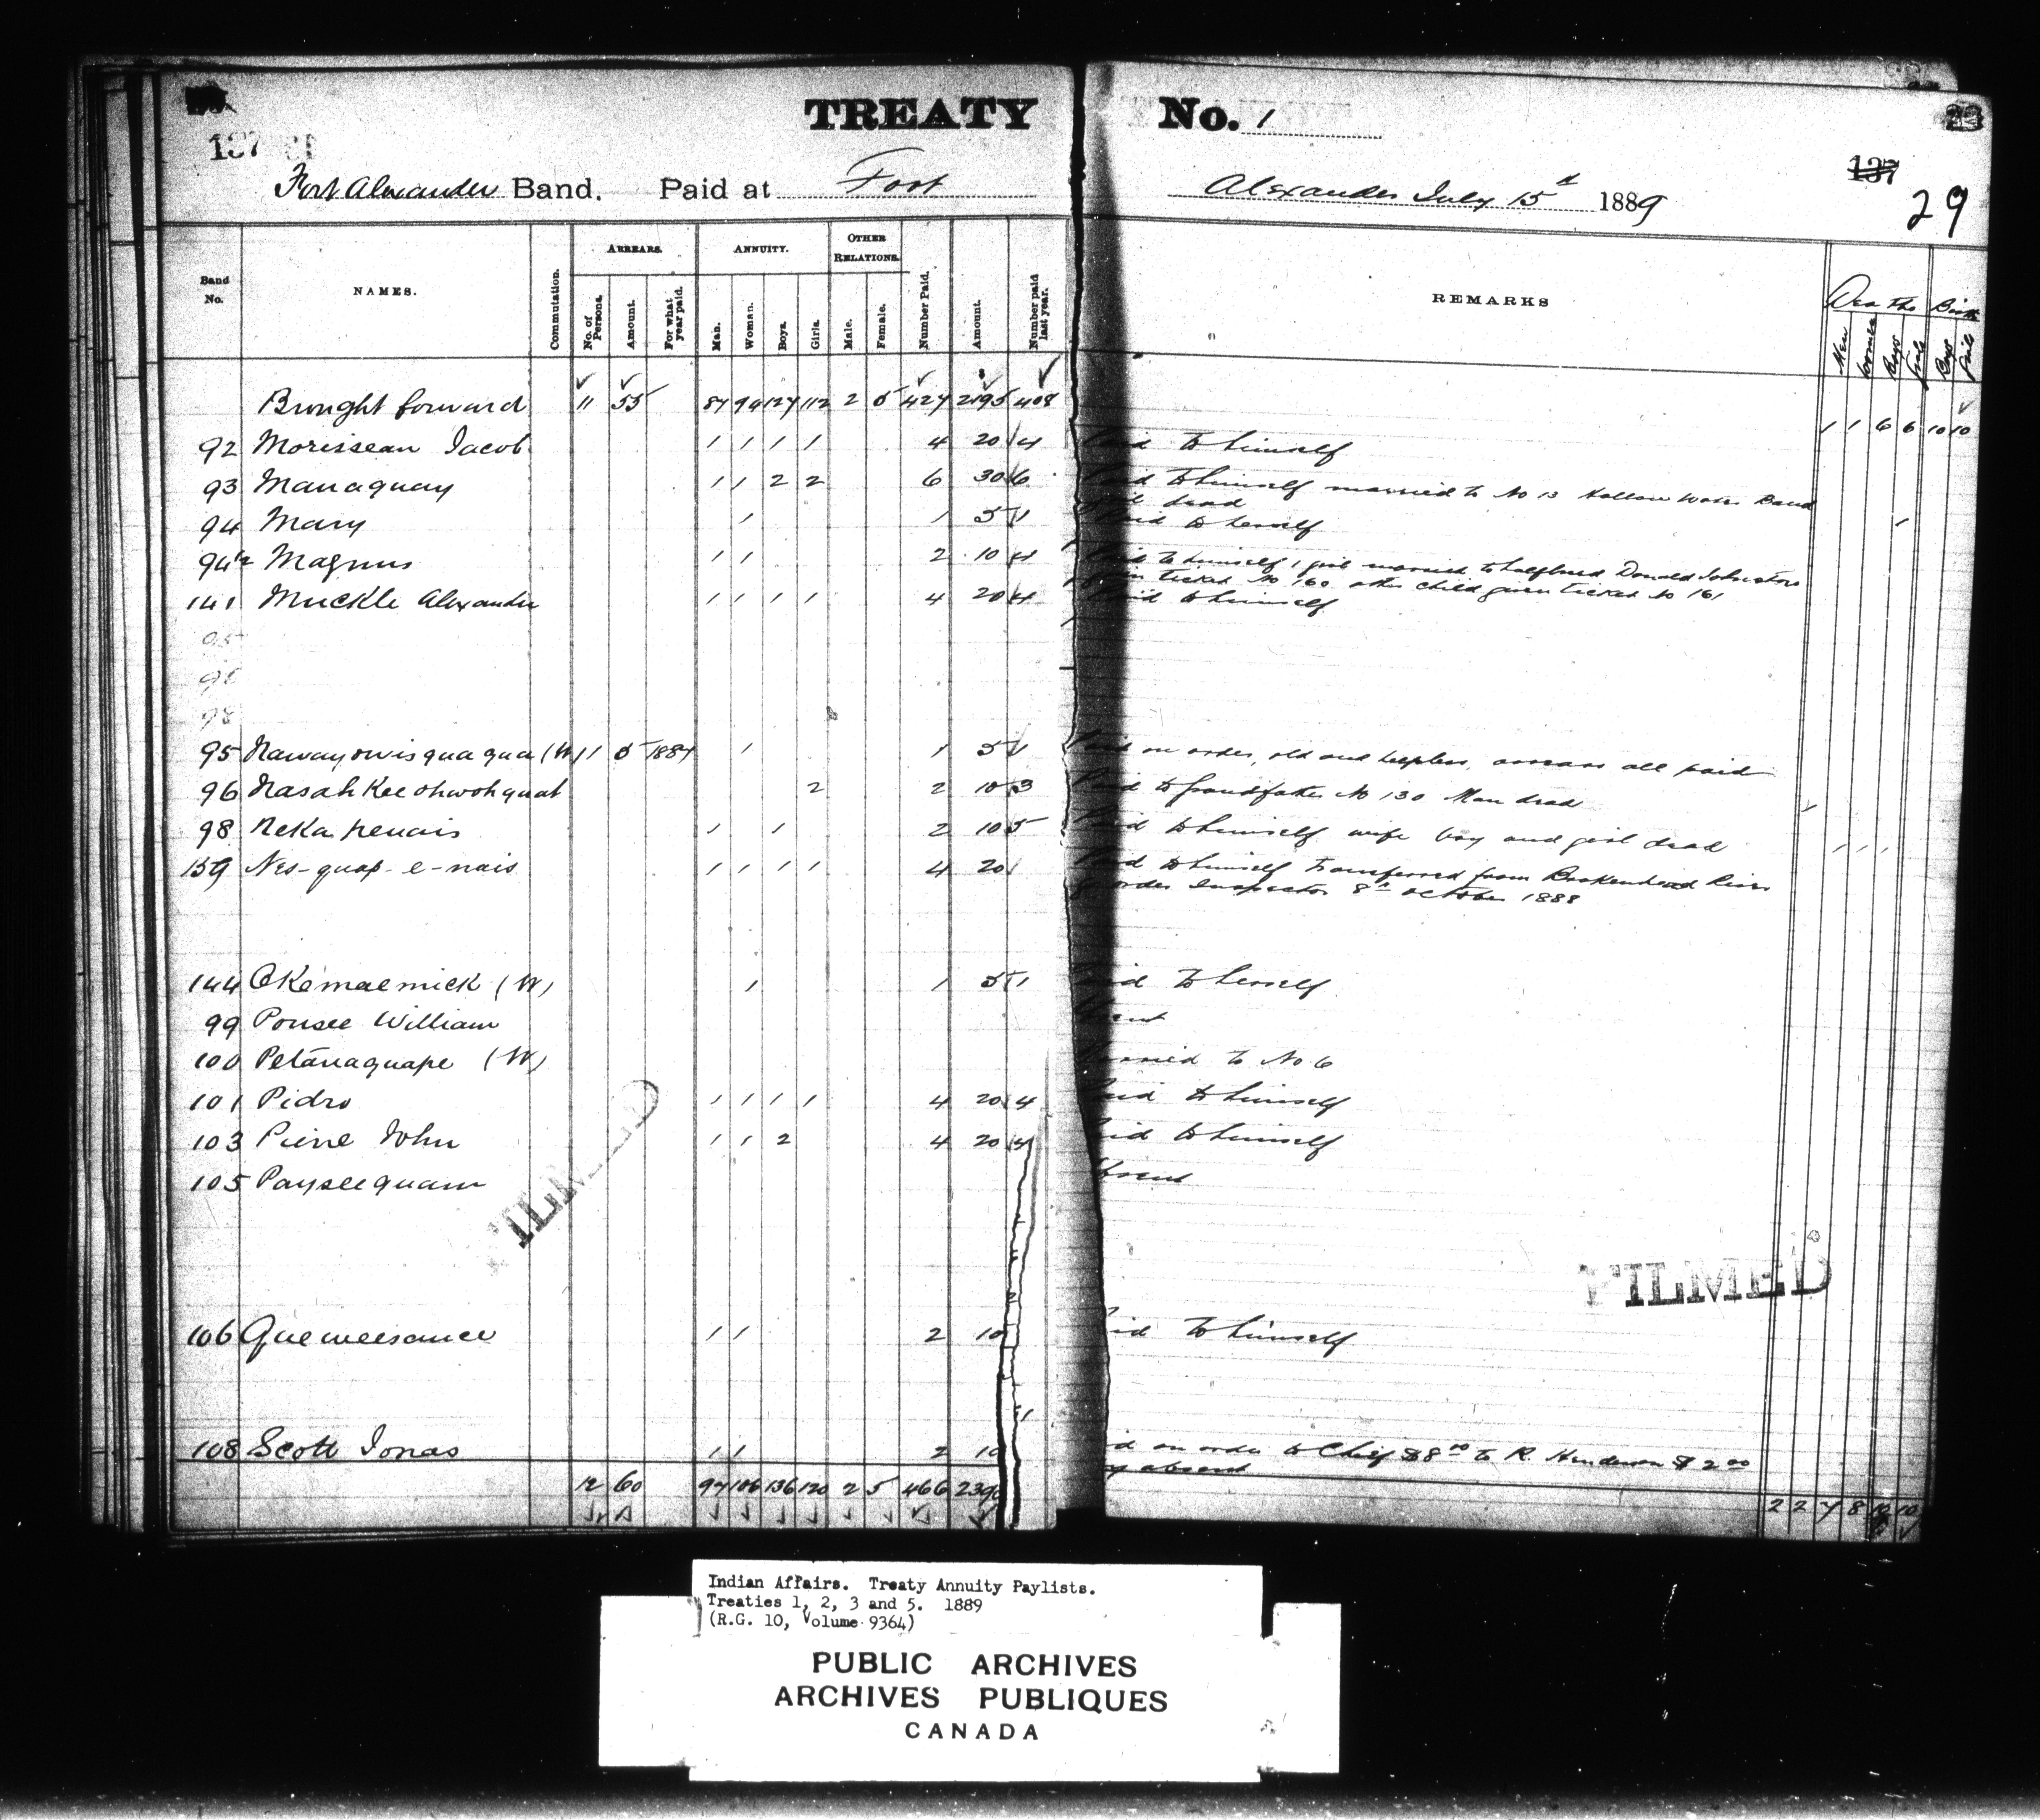 TREATY No. 1
137
137
29
Fort Alexander Band. Paid at Fort Alexander July 15th 1889
Band No. NAMES. Commutation. ARREARS. No. of Persons. Amount. For what year paid. ANNUITY. Man. Woman. Boys. Girls. OTHER RELATIONS. Male. Female. Number Paid. Amount. Number paid last year. REMARKS Deaths Men Women Boys Girls Births Boys Girls
Brought forward 11 55 87 94 127 112 2 5 427 2195 408 1 1 6 6 10 10
92 Morisseau Jacob 1 1 1 1 4 20 4 Paid to himself
93 Managuay 1 1 2 2 6 30 6 Paid to himself married to No 13 Hollow Water Band
girl dead
94 Mary 1 1 5 1 Paid to herself 1
94 1/2 Magnus 1 1 2 10 4 Paid to himself, 1 girl married to halfbreed Donald Johnston
given ticket No 160 other child given ticket No 161
141 Muckle Alexander 1 1 1 1 4 20 4 Paid to himself
95
96
98
95 Nawayowisquaqua (W) 1 5 1887 1 1 5 1 Paid on order, old and helpless, arrears all paid
96 Nasahkeeohwohquat 2 2 10 3 Paid to grandfather No 130 Man dead 1
98 Nekapenais 1 1 2 10 5 Paid to himself wife boy and girl dead 1 1 1
159 Nes-quap-e-nais 1 1 1 1 4 20 Paid to himself Transferred from Brokenhead River
order Inspector 8th October 1888
144 Okemaemick (W) 1 1 5 1 Paid to herself
99 Ponsee William Absent
100 Petanaquape (W) Married to No 6
101 Pidro 1 1 1 1 4 20 4 Paid to himself
103 Pierre John 1 1 2 4 20 4 Paid to himself
105 Payseequam Absent
FILMED
FILMED
106 Queweesance 1 1 2 10 Paid to himself
108 Scott Jonas 1 1 2 10 Paid on order to Chief $8.00 to R. Henderson $2.00
absent
12 60 97 106 136 120 2 5 466 2390 2 2 7 8 10 10
Indian Affairs. Treaty Annuity Paylists.
Treaties 1, 2, 3 and 5. 1889
(R.G. 10, Volume 9364)
PUBLIC ARCHIVES
ARCHIVES PUBLIQUES
CANADA